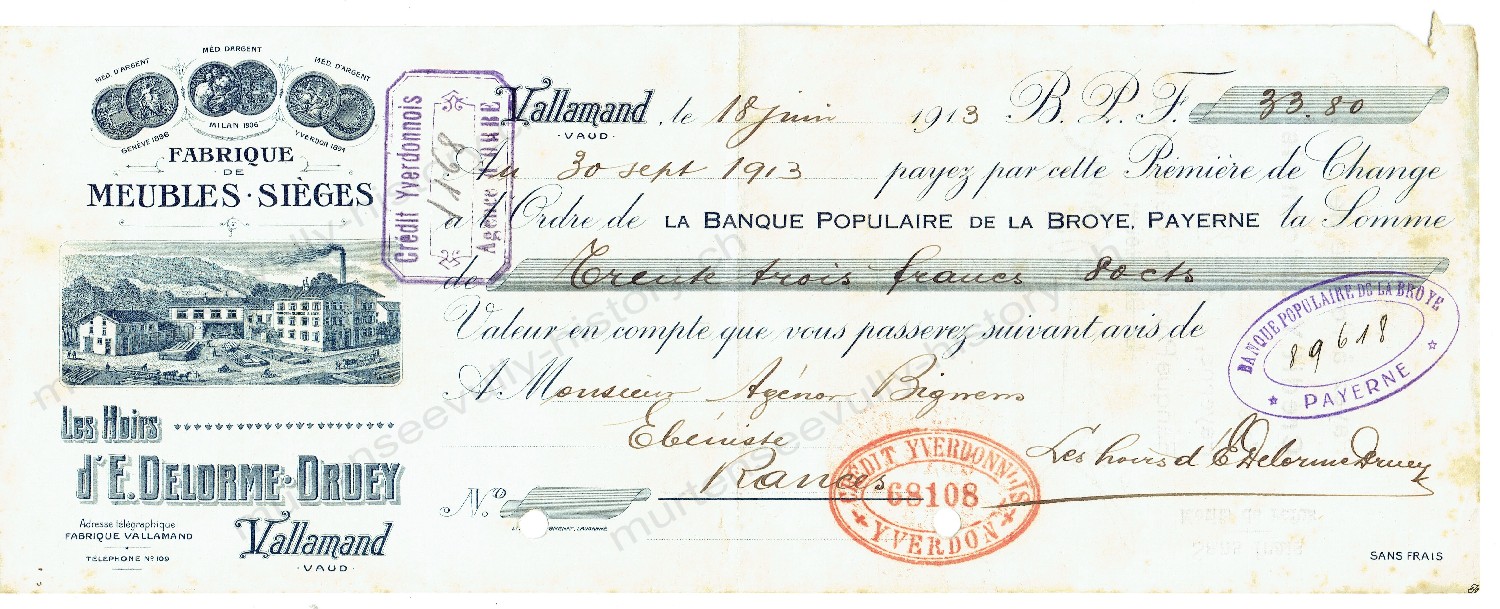 MÉD. D'ARGENT
MÉD. D'ARGENT
MÉD. D'ARGENT
GENÈVE 1896
MILAN 1906
YVERDON 1894
FABRIQUE
DE
MEUBLES · SIÈGES
Les Hoirs
d'E. DELORME-DRUEY
Adresse télégraphique
FABRIQUE VALLAMAND
TÉLÉPHONE Nº 109
Vallamand
· VAUD ·
Crédit Yverdonnois
Agence
Vallamand, le 18 juin 1913 B.P.F. 33.80
· VAUD ·
Au 30 sept 1913 payez par cette Première de Change
à l'Ordre de LA BANQUE POPULAIRE DE LA BROYE, PAYERNE la Somme
de Trente trois francs 80 cts
Valeur en compte que vous passerez suivant avis de
BANQUE POPULAIRE DE LA BROYE
89618
PAYERNE
A Monsieur Agénor Bignens
Ebéniste
Rances
Les hoirs d'E. Delorme Druey
CRÉDIT YVERDONNOIS
68108
YVERDON
Nº
LAUSANNE
SANS FRAIS
murtenseevully-history.ch
murtenseevully-history.ch